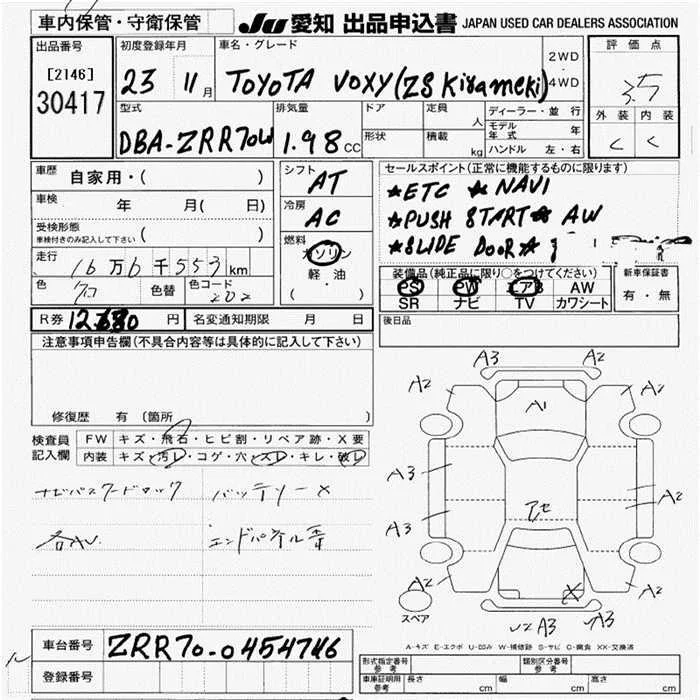 車内保管・守衛保管
JU 愛知 出品申込書 JAPAN USED CAR DEALERS ASSOCIATION
出品番号
[2146]
30417
初度登録年月
23 11月
車名・グレード
TOYOTA VOXY (ZS Kirameki)
2WD
4WD
評価点
3.5
外装 内装
C C
型式
DBA-ZRR70W
排気量
1.98 CC
ドア
定員
人
形状
積載
kg
ディーラー・並行
モデル年式 年
ハンドル 左・右
車歴 自家用・( )
車検 年 月( 日)
受検形態
車検付きのみ記入して下さい ( )
走行 16万6千553km
色 クロ 色替 色コード 202
シフト AT
冷房 AC
燃料
ガソリン
軽・油
( )
セールスポイント(正常に機能するものに限ります)
★ETC ★NAVI
★PUSH START★ AW
★SLIDE DOOR★
装備品(純正品に限り○をつけてください)
PS PW エアB AW
SR ナビ TV カワシート
新車保証書
有・無
R券 12,680円 名変通知期限 月 日
後日品
注意事項申告欄(不具合内容等は具体的に記入して下さい)
修復歴 有 (箇所
検査員記入欄
FW キズ・飛石・ヒビ割・リペア跡・X要
内装 キズ・汚レ・コゲ・穴・スレ・キレ・破レ
ナビパスワードロック バッテリー×
各AU エンドパネル歪
A3 A2
A2 A2
A1
A3
A2
A3
アセ
A2 A2
X
A3 A3
スペア
A-キズ E-エクボ U-凹み W-補修跡 S-サビ C-腐食 XX-交換済
車台番号 ZRR70-0454746
登録番号
形式指定番号
参考
類別区分番号
参考
車庫証明用
参考
長さ cm 幅 cm 高さ cm